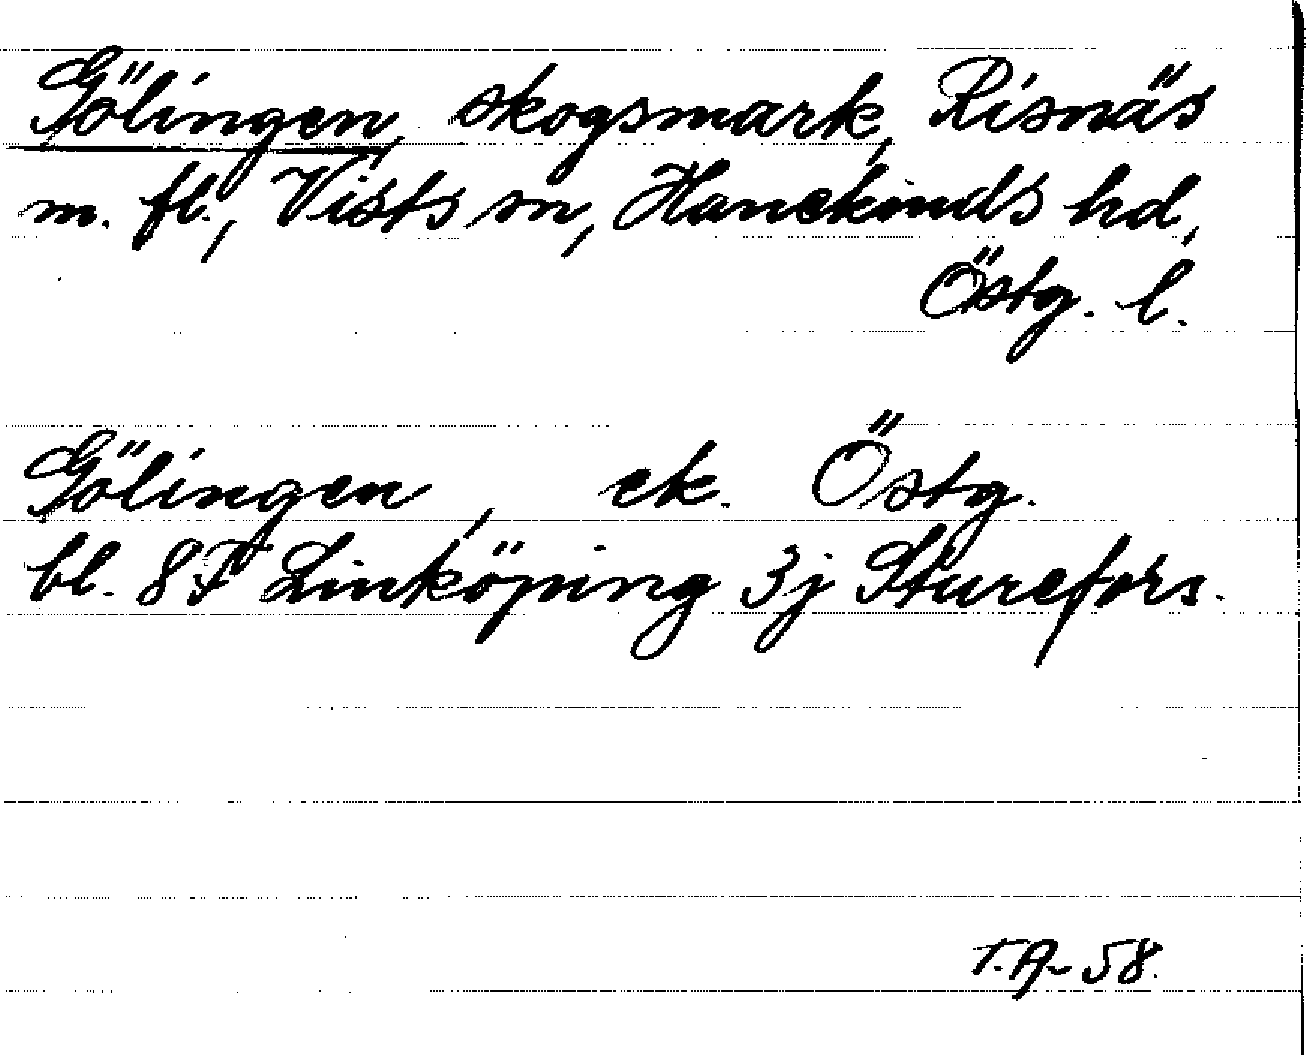 Gölingen, skogsmark, Risnäs
m. fl., Vists sn, Hanekinds hd,
Östg. l.
Gölingen, ek. Östg.
bl. 8F Linköping 3j Sturefors.
T.A-58.